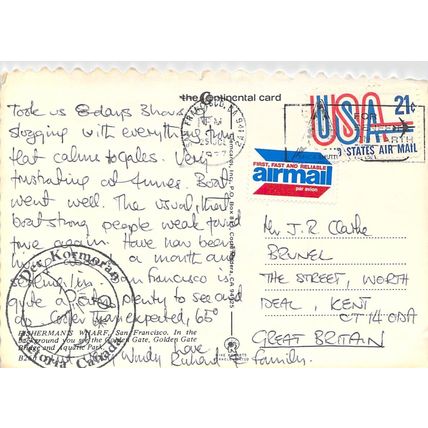 the continental card
Took us 8 days 3 hours
slogging with everything from
flat calms to gales. Very
frustrating at times. Boat
went well. The usual, that
boat strong people weak found
true again. Have now been
here a month and
San Francisco is
quite a place, plenty to see and
do. Cooler than expected, 65°
Windy Love
Richard & family.
FISHERMAN'S WHARF, San Francisco. In the
background you see the Golden Gate, Golden Gate
Bridge and Aquatic Park
Der Kormoran
Victoria Canada
SAN FRANCISCO, CA
USA 21¢
UNITED STATES AIR MAIL
FIRST, FAST AND RELIABLE
airmail
par avion
Mr J.R Clarke
BRUNEL
THE STREET, WORTH
DEAL, KENT
CT14 0DA
GREAT BRITAIN